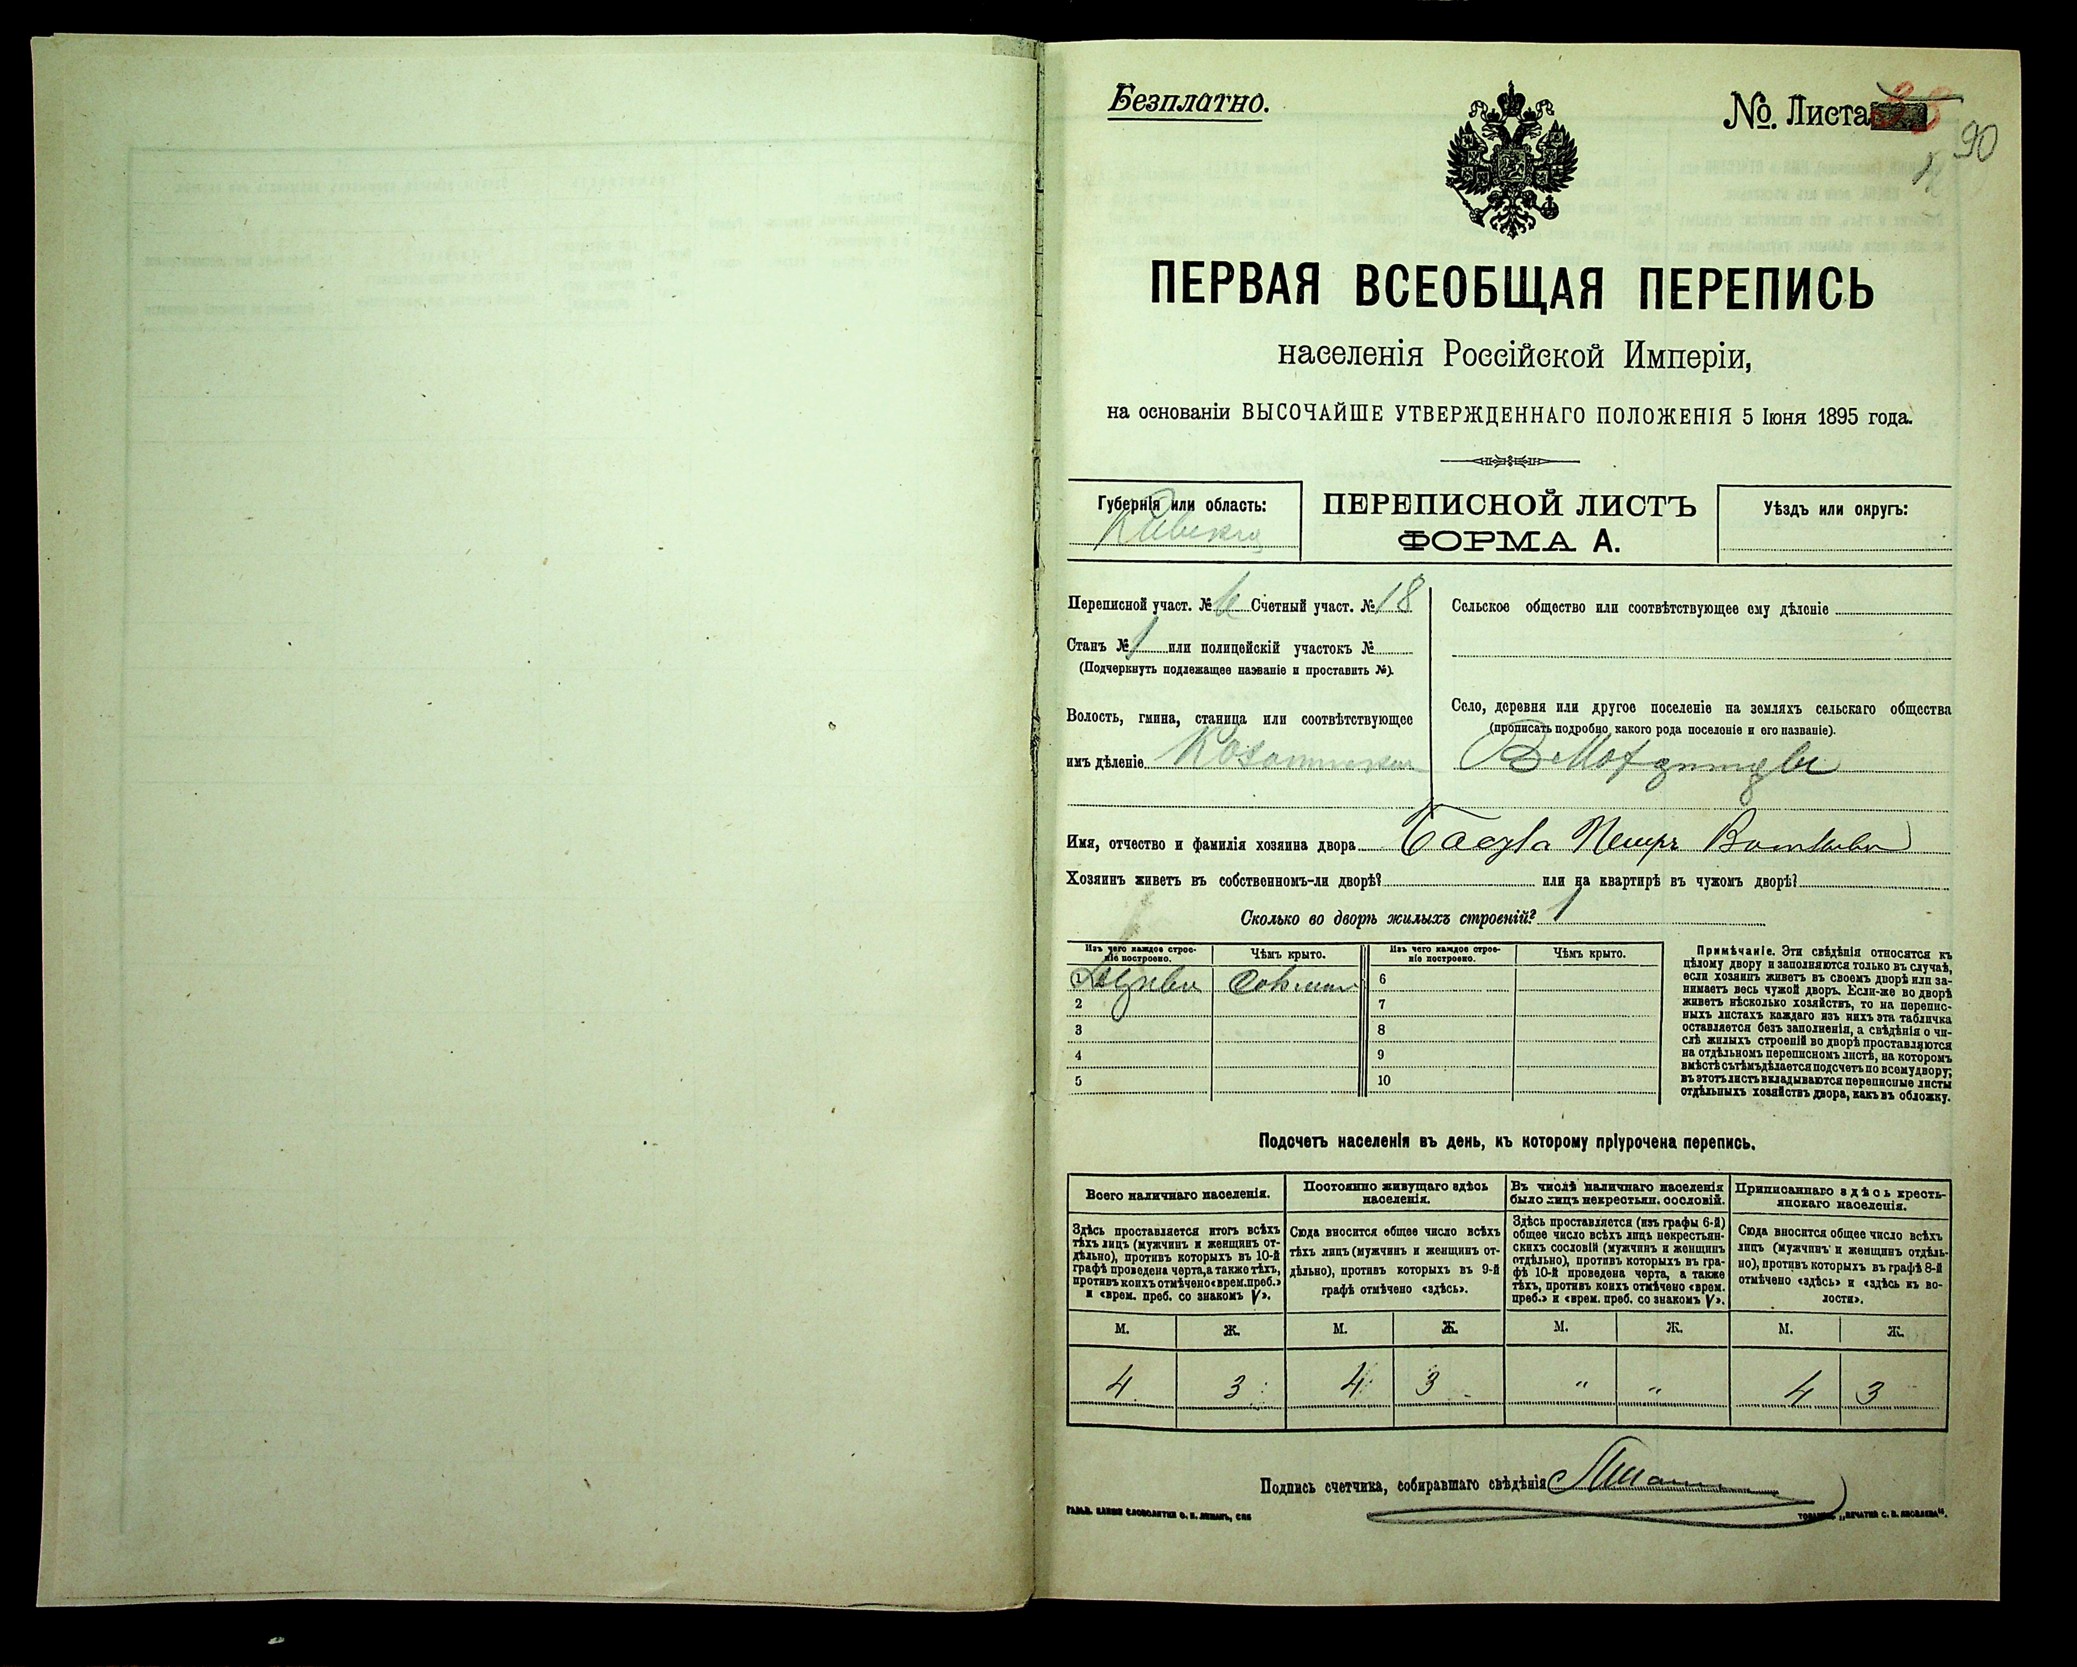 Безплатно.
№. Листа
90
ПЕРВАЯ ВСЕОБЩАЯ ПЕРЕПИСЬ
населенія Россійской Имперіи,
на основаніи ВЫСОЧАЙШЕ УТВЕРЖДЕННАГО ПОЛОЖЕНІЯ 5 Іюня 1895 года.
Губернія или область:
ПЕРЕПИСНОЙ ЛИСТЪ
ФОРМА А.
Уѣздъ или округъ:
Переписной участ. № Счетный участ. № 18
Станъ № 1 или полицейскій участокъ №
(Подчеркнуть подлежащее названіе и проставить №).
Волость, гмина, станица или соотвѣтствующее
имъ дѣленіе
Сельское общество или соотвѣтствующее ему дѣленіе
Село, деревня или другое поселеніе на земляхъ сельскаго общества
(прописать подробно какого рода поселеніе и его названіе).
Имя, отчество и фамилія хозяина двора Петръ
Хозяинъ живетъ въ собственномъ-ли дворѣ? или на квартирѣ въ чужомъ дворѣ?
Сколько во дворѣ жилыхъ строеній? 1
Изъ чего каждое строе-
ніе построено.
Чѣмъ крыто.
Изъ чего каждое строе-
ніе построено.
Чѣмъ крыто.
1 6
2 7
3 8
4 9
5 10
Примѣчаніе. Эти свѣдѣнія относятся къ
цѣлому двору и заполняются только въ случаѣ,
если хозяинъ живетъ въ своемъ дворѣ или за-
нимаетъ весь чужой дворъ. Если-же во дворѣ
живетъ нѣсколько хозяйствъ, то на перепис-
ныхъ листахъ каждаго изъ нихъ эта табличка
оставляется безъ заполненія, а свѣдѣнія о чи-
слѣ жилыхъ строеній во дворѣ проставляются
на отдѣльномъ переписномъ листѣ, на которомъ
вмѣстѣ съ тѣмъ дѣлается подсчетъ по всему двору;
въ этотъ листъ вкладываются переписные листы
отдѣльныхъ хозяйствъ двора, какъ въ обложку.
Подсчетъ населенія въ день, къ которому пріурочена перепись.
Всего наличнаго населенія.
Здѣсь проставляется итогъ всѣхъ
тѣхъ лицъ (мужчинъ и женщинъ от-
дѣльно), противъ которыхъ въ 10-й
графѣ проведена черта, а также тѣхъ,
противъ коихъ отмѣчено «врем. преб.»
и «врем. преб. со знакомъ V».
Постоянно живущаго здѣсь
населенія.
Сюда вносится общее число всѣхъ
тѣхъ лицъ (мужчинъ и женщинъ от-
дѣльно), противъ которыхъ въ 9-й
графѣ отмѣчено «здѣсь».
Въ числѣ наличнаго населенія
было лицъ некрестьян. сословій.
Здѣсь проставляется (изъ графы 6-й)
общее число всѣхъ лицъ некрестьян-
скихъ сословій (мужчинъ и женщинъ
отдѣльно), противъ которыхъ въ гра-
фѣ 10-й проведена черта, а также
тѣхъ, противъ коихъ отмѣчено «врем.
преб.» и «врем. преб. со знакомъ V».
Приписаннаго здѣсь кресть-
янскаго населенія.
Сюда вносится общее число всѣхъ
лицъ (мужчинъ и женщинъ отдѣль-
но), противъ которыхъ въ графѣ 8-й
отмѣчено «здѣсь» и «здѣсь къ во-
лости».
М. Ж. М. Ж. М. Ж. М. Ж.
4 3 4 3 " " 4 3
Подпись счетчика, собиравшаго свѣдѣнія